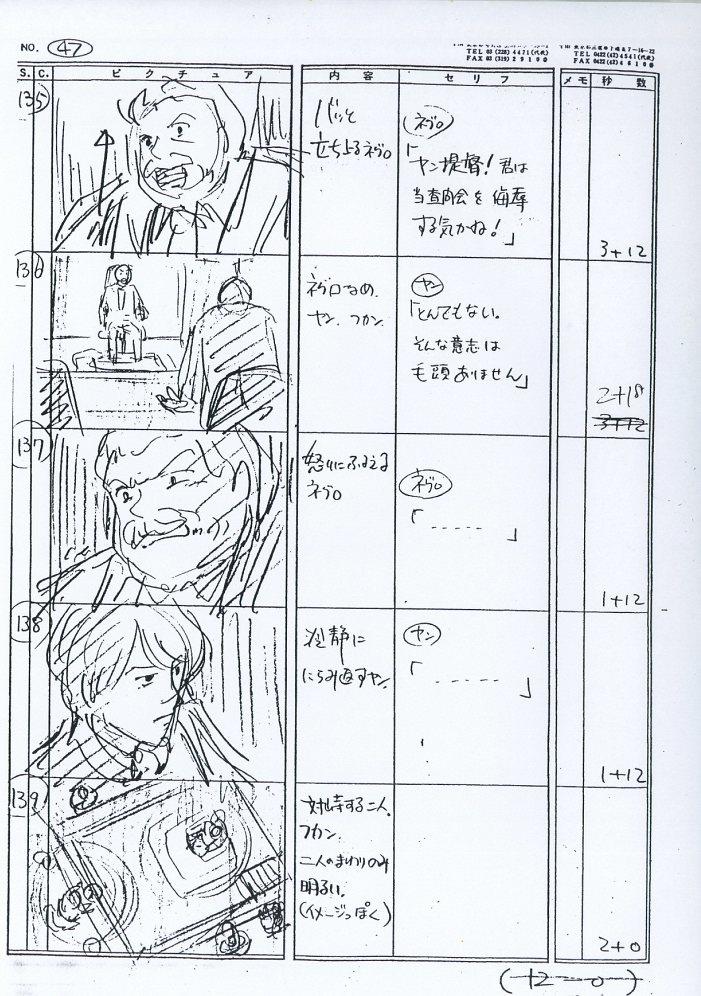 NO. 47
TEL 03 (228) 4471(代表)
FAX 03 (319) 29100
TEL 0422 (42) 4541(代表)
FAX 0422 (42) 46100
S. C. ピクチュア 内容 セリフ メモ 秒数
135
バッと
立ち上るネグロ
ネグロ
「ヤン提督!君は
当査問会を侮辱
する気かね!」
3+12
136
ネグロなめ、
ヤン、フカン。
ヤン
「とんでもない。
そんな意志は
毛頭ありません」
2+18
3+12
137
怒りにふるえる
ネグロ
ネグロ
「------」
1+12
138
冷静に
にらみ返すヤン。
ヤン
「------」
1+12
139
対峙する二人。
フカン。
二人のまわりのみ
明るい。
(イメージっぽく)
2+0
(12-0)